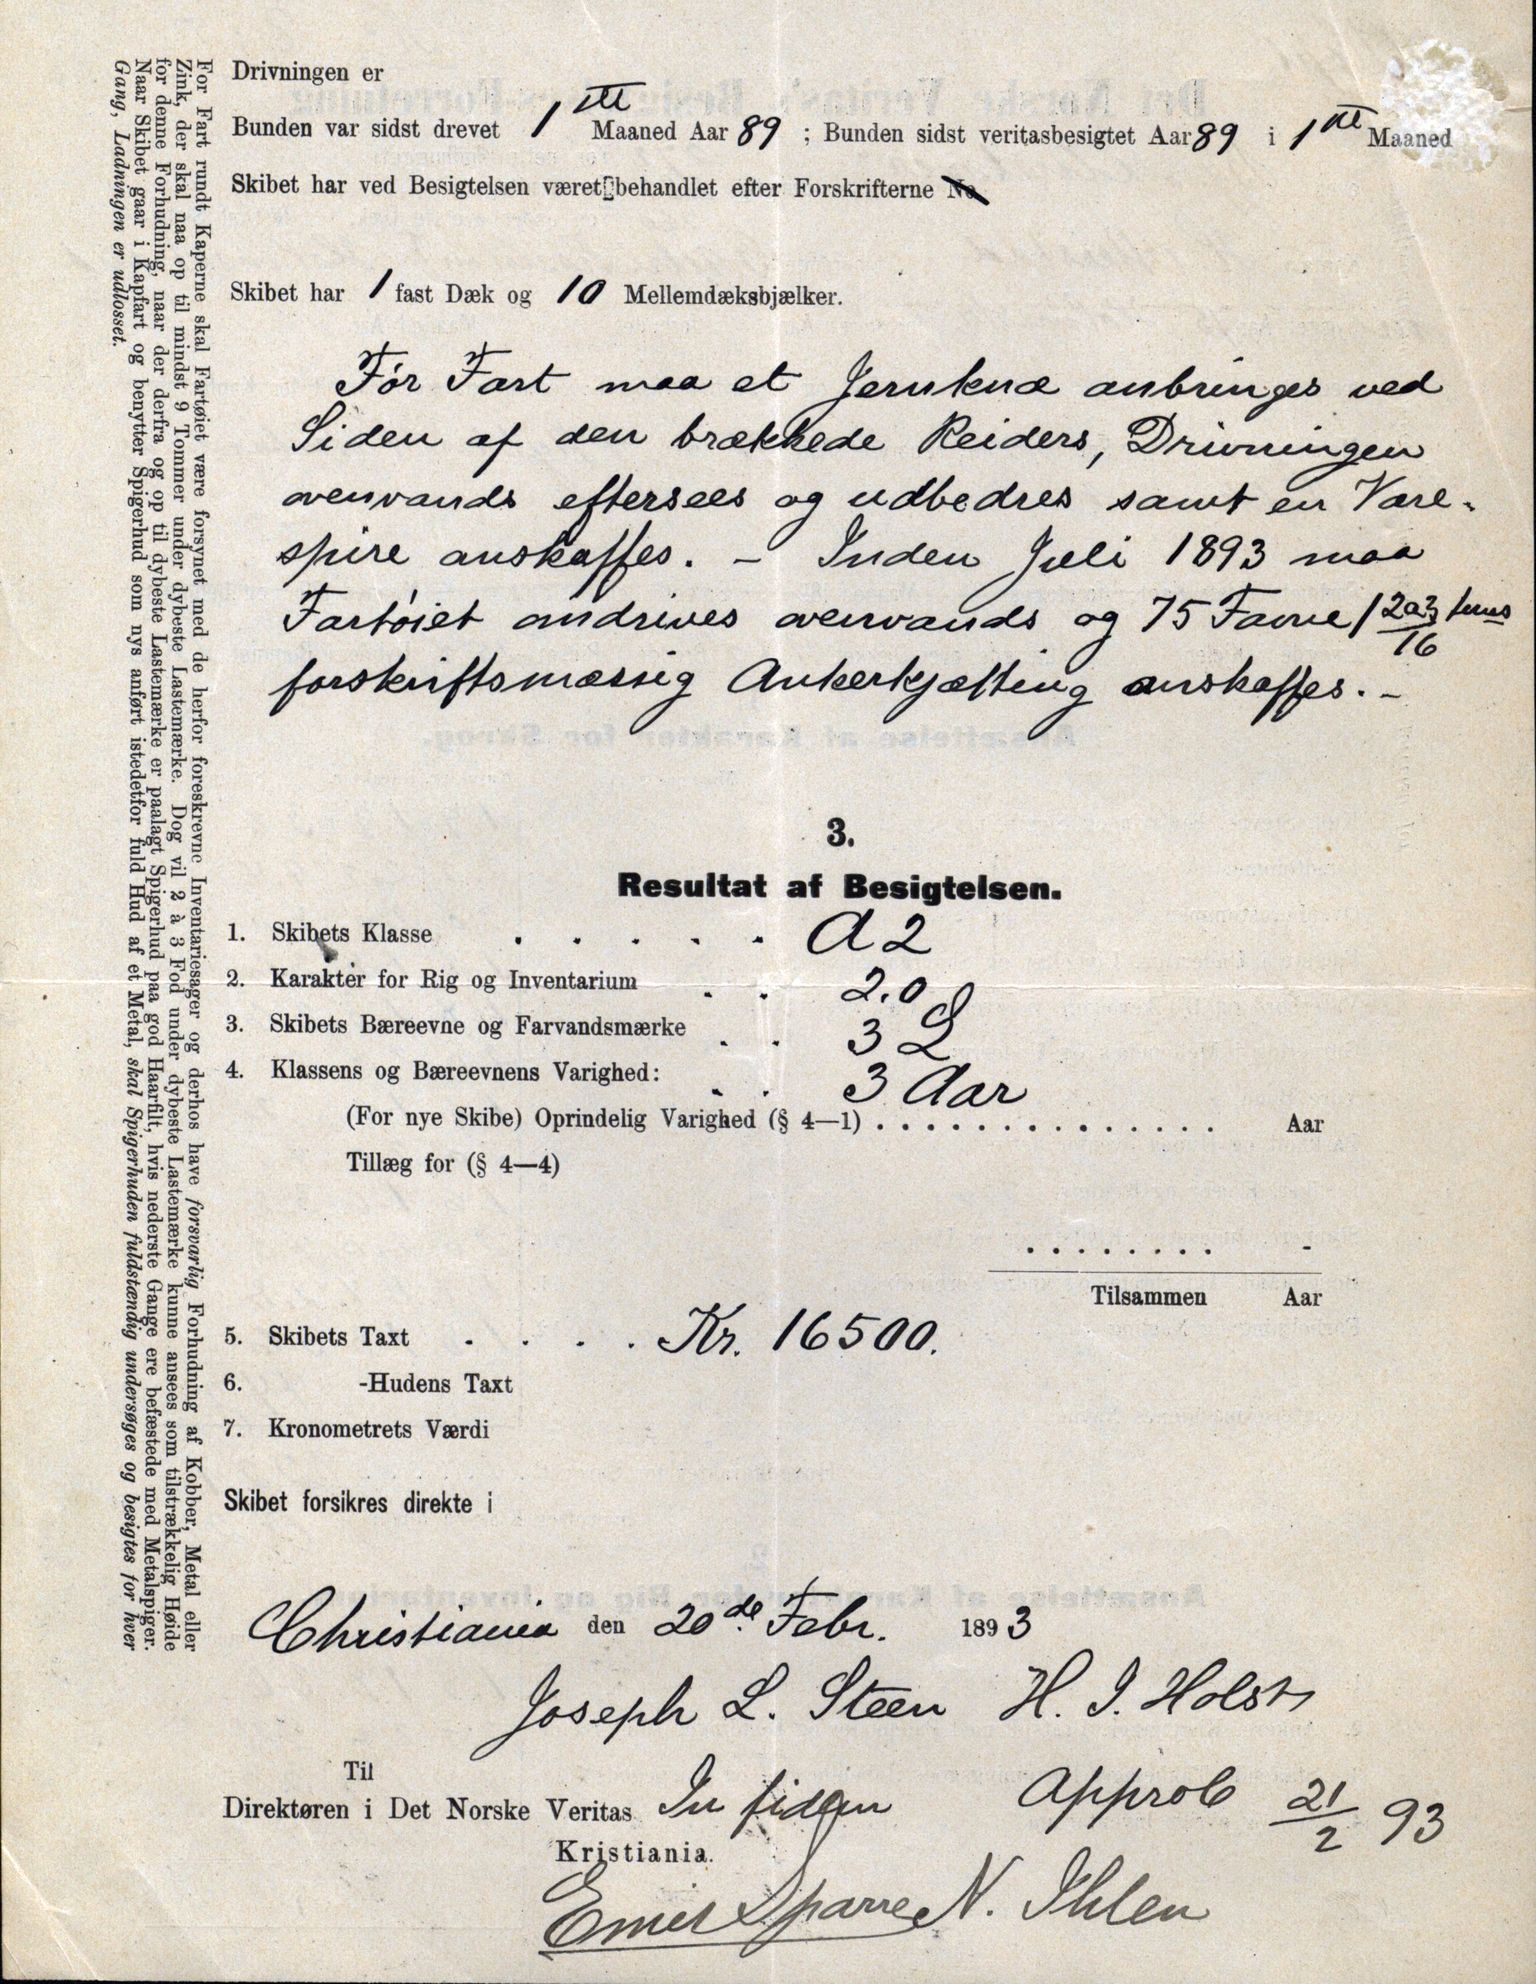 Drivningen er
Bunden var sidst drevet 1ste Maaned Aar 89 ; Bunden sidst veritasbesigtet Aar 89 i 1ste Maaned
Skibet har ved Besigtelsen været behandlet efter Forskrifterne No
Skibet har 1 fast Dæk og 10 Mellemdæksbjælker.
Før Fart maa et Jernknæ anbringes ved
Siden af den brækkede Reiders, Drivningen
ovenvands eftersees og udbedres samt en Vare-
spire anskaffes. – Inden Juli 1893 maa
Fartøiet omdrives ovenvands og 75 Favne 1 2a3/16 tms
forskriftsmæssig Ankerkjætting anskaffes. –
3.
Resultat af Besigtelsen.
1. Skibets Klasse . . . . . A 2
2. Karakter for Rig og Inventarium . . 2.0
3. Skibets Bæreevne og Farvandsmærke . . 3 L
4. Klassens og Bæreevnens Varighed: . . 3 Aar
(For nye Skibe) Oprindelig Varighed (§ 4—1) . . . . . . . . . . . . . . . Aar
Tillæg for (§ 4—4)
. . . . . . . . -
Tilsammen Aar
5. Skibets Taxt . . . . Kr. 16500.
6. -Hudens Taxt
7. Kronometrets Værdi
Skibet forsikres direkte i
Christiania den 20de Febr. 1893
Joseph L. Steen H. J. Holst
Til
Direktøren i Det Norske Veritas In fidem Approb 21/2 93
Kristiania.
Emil Sparre N. Ihlen
For Fart rundt Kaperne skal Fartøiet være forsynet med de herfor foreskrevne Inventariesager og derhos have forsvarlig Forhudning af Kobber, Metal eller
Zink, der skal naa op til mindst 9 Tommer under dybeste Lastemærke. Dog vil 2 à 3 Fod under dybeste Lastemærke kunne ansees som tilstrækkelig Høide
for denne Forhudning, naar der derfra og op til dybeste Lastemærke er paalagt Spigerhud paa god Haarfilt, hvis nederste Gange ere befæstede med Metalspiger.
Naar Skibet gaar i Kapfart og benytter Spigerhud som nys anført istedetfor fuld Hud af et Metal, skal Spigerhuden fuldstændig undersøges og besigtes for hver
Gang, Ladningen er udlosset.